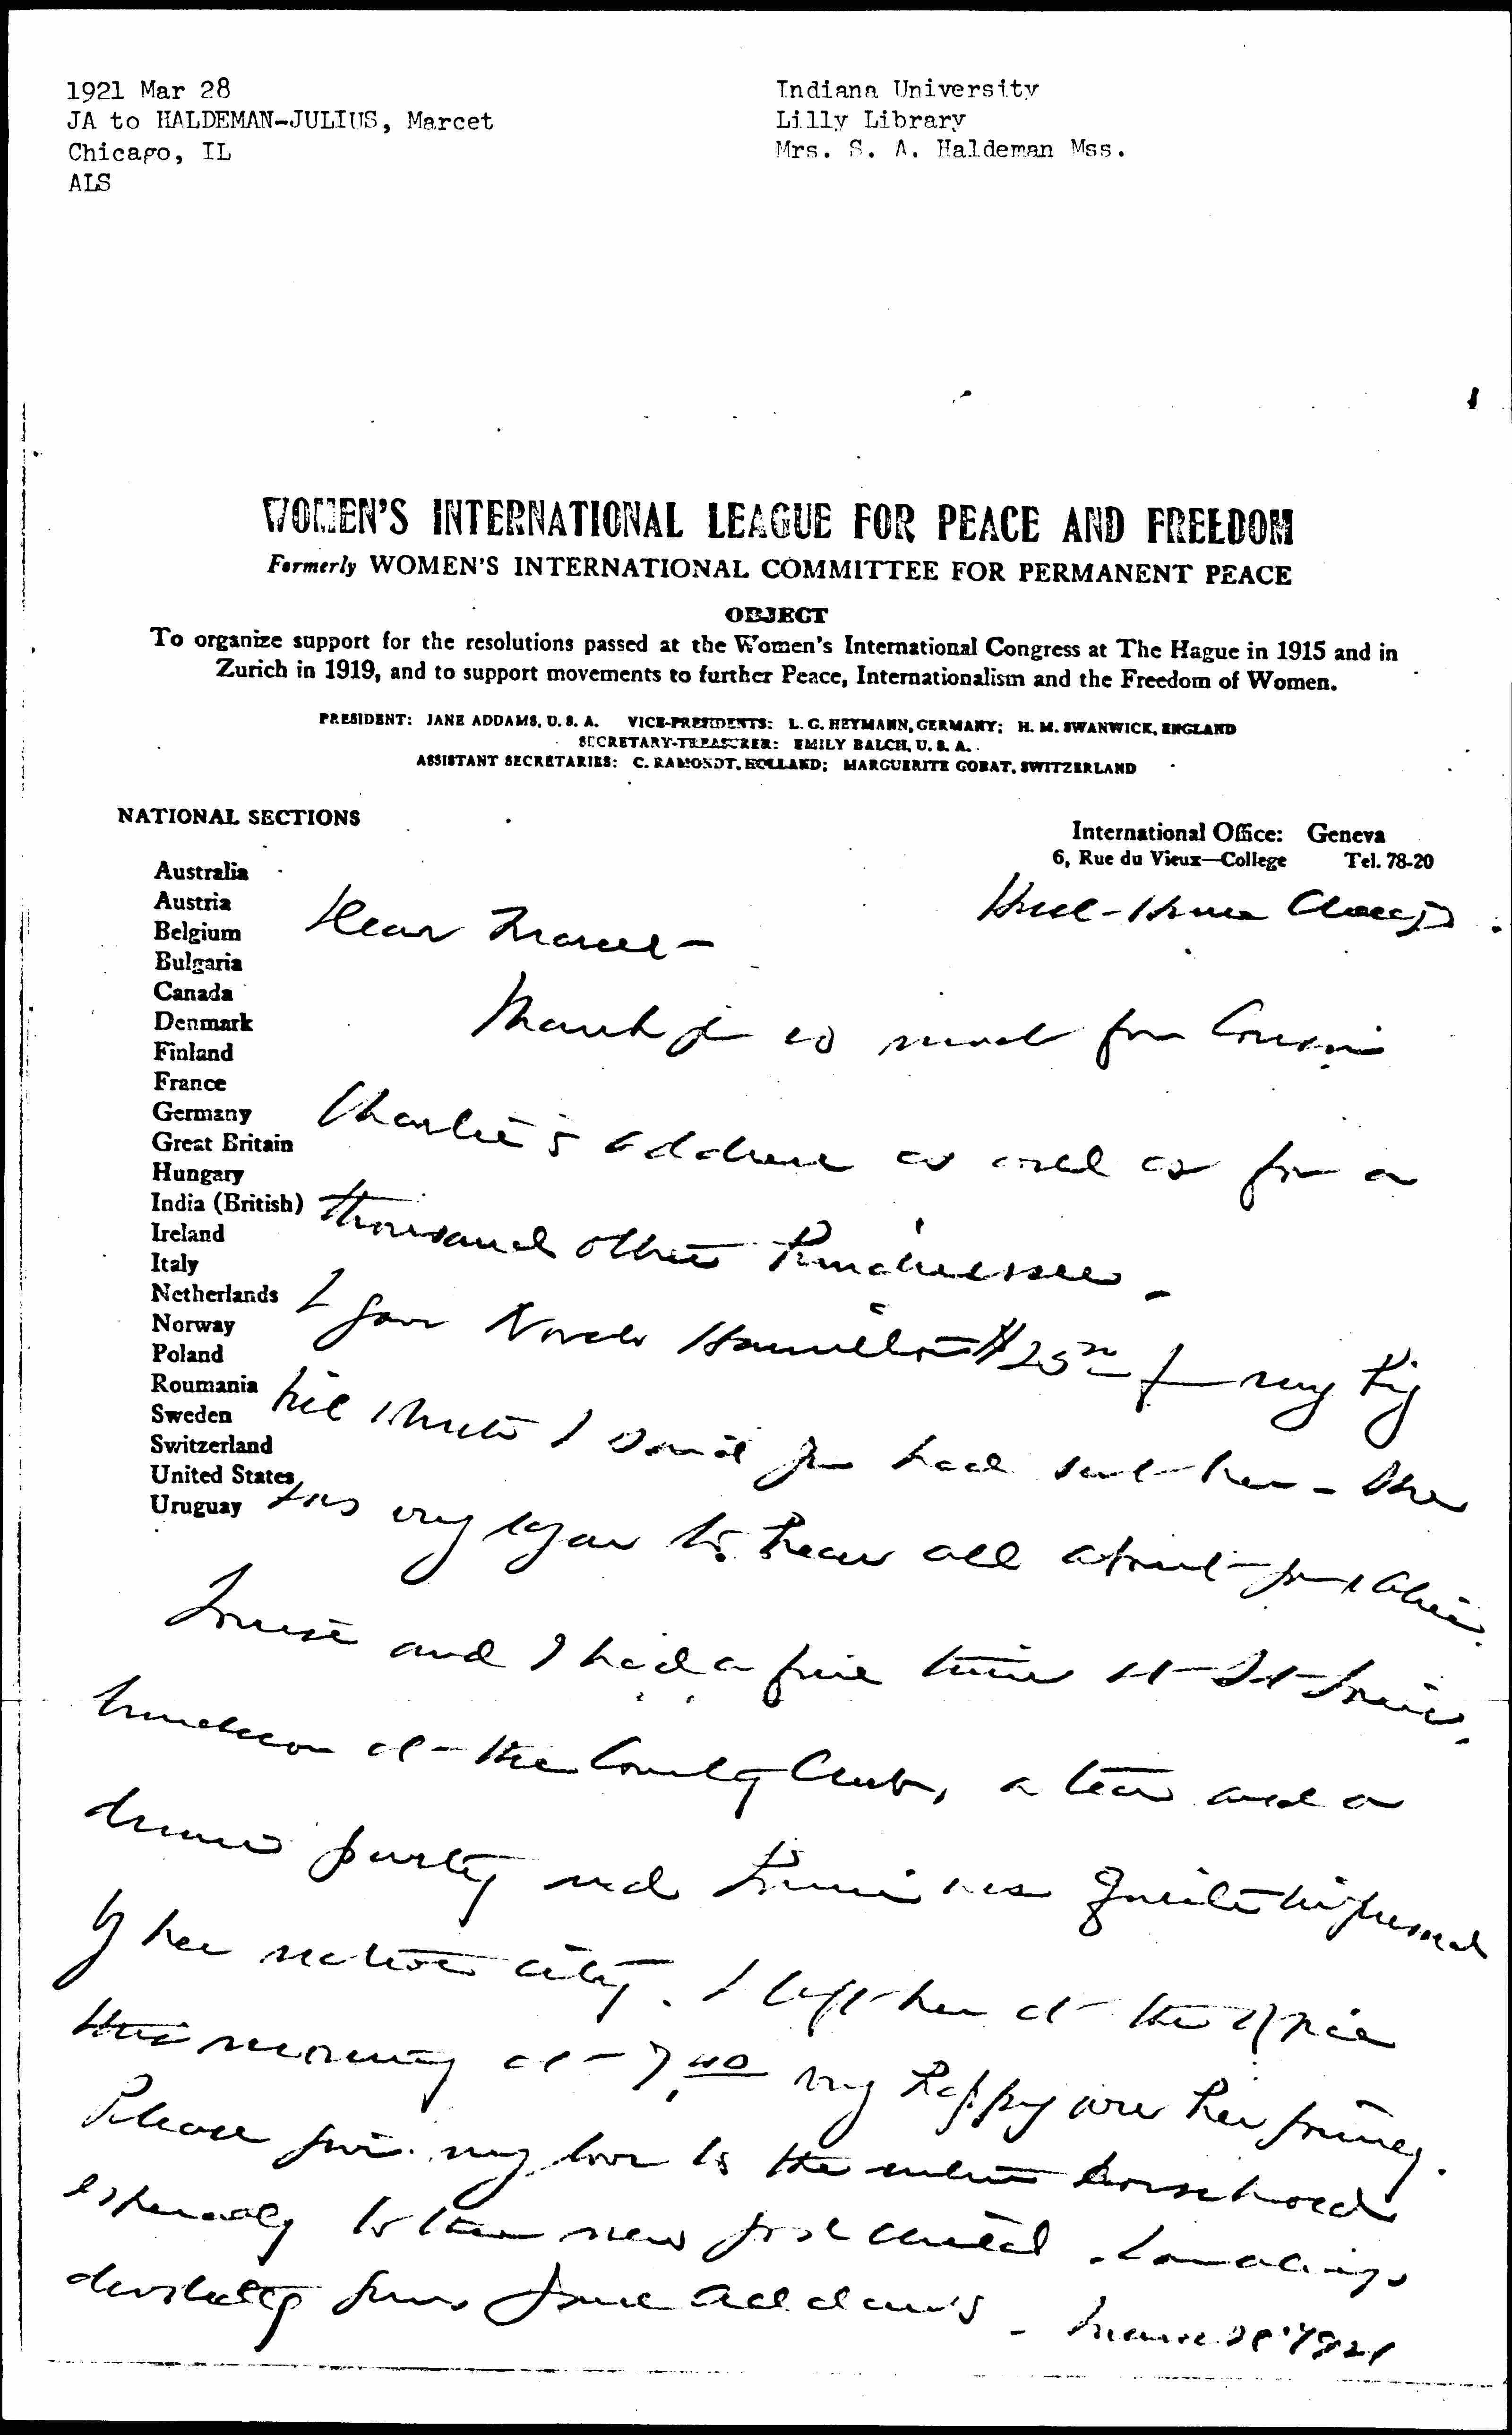 1921 Mar 28
JA to HALDEMAN-JULIUS, Marcet
Chicago, IL
ALS
Indiana University
Lilly Library
Mrs. S. A. Haldeman Mss.
1
WOMEN'S INTERNATIONAL LEAGUE FOR PEACE AND FREEDOM
Formerly WOMEN'S INTERNATIONAL COMMITTEE FOR PERMANENT PEACE
OBJECT
To organize support for the resolutions passed at the Women's International Congress at The Hague in 1915 and in
Zurich in 1919, and to support movements to further Peace, Internationalism and the Freedom of Women.
PRESIDENT: JANE ADDAMS, U. S. A. VICE-PRESIDENTS: L. G. HEYMANN, GERMANY; H. M. SWANWICK, ENGLAND
SECRETARY-TREASURER: EMILY BALCH, U. S. A.
ASSISTANT SECRETARIES: C. RAMONDT, HOLLAND; MARGUERITE GOBAT, SWITZERLAND
NATIONAL SECTIONS
International Office: Geneva
6, Rue du Vieux—College Tel. 78-20
Australia
Austria
Belgium
Bulgaria
Canada
Denmark
Finland
France
Germany
Great Britain
Hungary
India (British)
Ireland
Italy
Netherlands
Norway
Poland
Roumania
Sweden
Switzerland
United States
Uruguay
Hull-House Chicago
Dear Marcet -
Thank you so much for Cousin
Charlie's address as well as for a
thousand other kindnesses -
I gave Norah Hamilton $25 00 for my
which I said you had sent her - She
was very eager to hear all about you & Alice.
Louise and I had a fine time at St Louis,
luncheon at the Country Club, a tea and a
dinner party and Louise was quite impressed
by her native city. I left her at the office
this morning at 7.40 very happy over her journey.
Please give my love to the entire household
especially to the new
devotedly yours Jane Addams - March 28" 1921